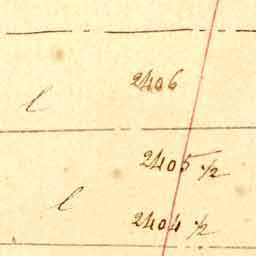 2406
l
2405 1/2
l
2404 1/2